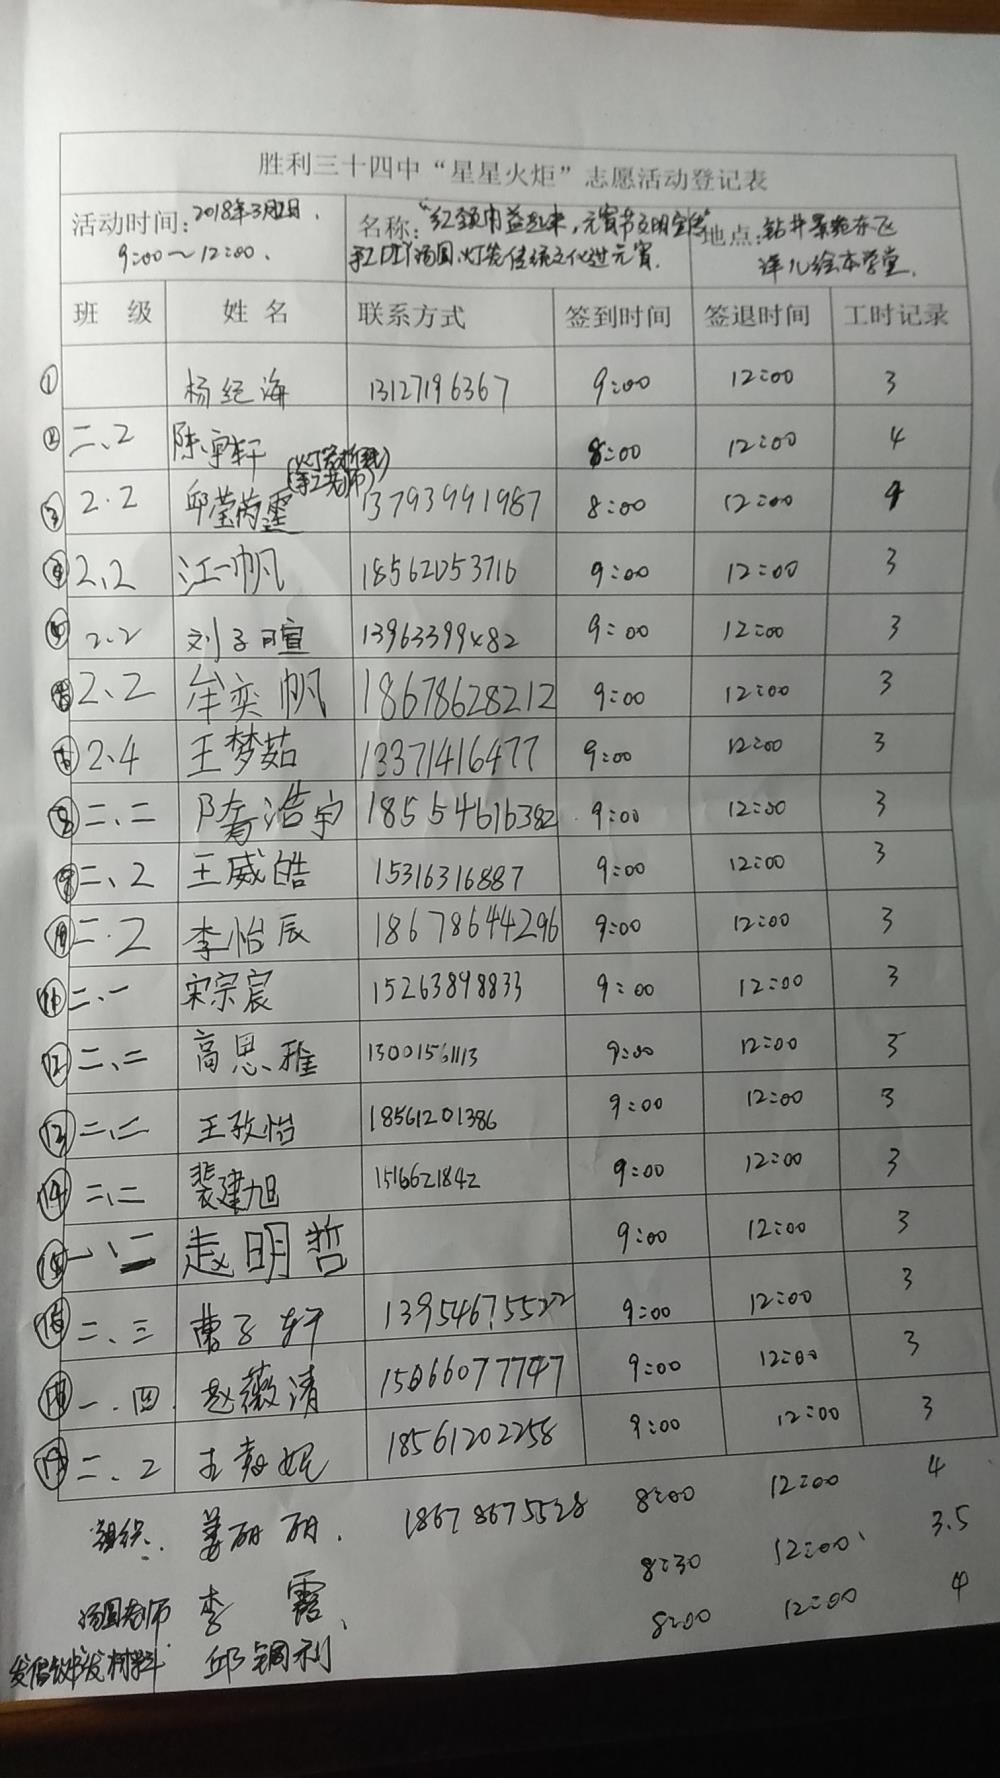 胜利三十四中“星星火炬”志愿活动登记表
活动时间：2018年3月2日. 名称：“红领巾益起来，元宵节文明宣传” 地点：钻井景苑东飞
9:00～12:00. 手工DIY汤圆、灯笼传统文化进元宵. 洋儿绘本学堂.
班 级 姓 名 联系方式 签到时间 签退时间 工时记录
① 杨纪海 13127196367 9:00 12:00 3
② 二、2 陈宇轩 8:00 12:00 4
(手工老师)
③ 2.2 邱莹芮霆 13793991987 8:00 12:00 4
④ 2、2 江一帆 18562053716 9:00 12:00 3
⑤ 2.2 刘子暄 13963399482 9:00 12:00 3
2.2 牟奕帆 18678628212 9:00 12:00 3
2.4 王梦茹 13371416477 9:00 12:00 3
⑧ 二、二 隋浩宇 18554616382 9:00 12:00 3
⑨ 二、2 王威皓 15316316887 9:00 12:00 3
二.2 李怡辰 18678644296 9:00 12:00 3
二、一 宋宗宸 15263898833 9:00 12:00 3
⑫ 二、二 高思雅 13001561113 9:00 12:00 3
⑬ 二、二 王孜怡 18561201386 9:00 12:00 3
⑭ 二、二 裴建旭 1516621842 9:00 12:00 3
⑮ 一、二 赵明哲 9:00 12:00 3
⑯ 二、三 曹子轩 13954675522 9:00 12:00 3
一.四. 赵薇清 15066077747 9:00 12:00 3
二、2 王 妮 18561202258 9:00 12:00 3
组织: 姜丽丽. 18678675528 8:00 12:00 4
汤圆老师 李霞、 8:30 12:00 3.5
发材料 邱钢利 8:00 12:00 4